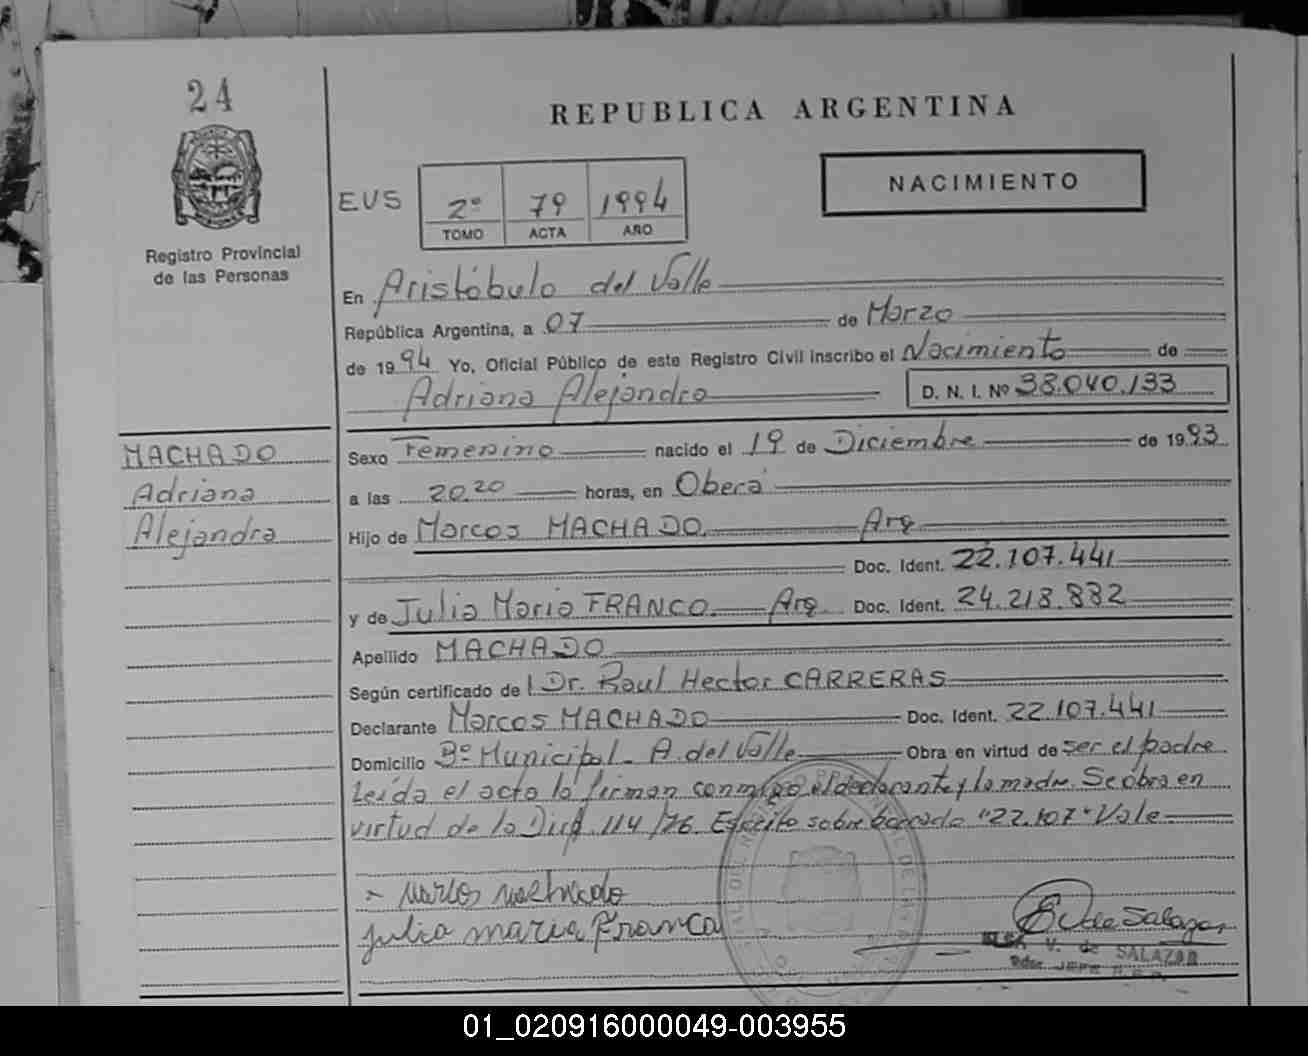 24
REPUBLICA ARGENTINA
Registro Provincial
de las Personas
EUS
2º 79 1994
TOMO ACTA AÑO
NACIMIENTO
En Aristóbulo del Valle
República Argentina, a 07 de Marzo
de 1994 Yo, Oficial Público de este Registro Civil inscribo el Nacimiento de
Adriana Alejandra D. N. I. Nº 38.040.133
MACHADO
Adriana
Alejandra
Sexo Femenino nacido el 19 de Diciembre de 1993
a las 20.20 horas, en Oberá
Hijo de Marcos MACHADO. Arg
Doc. Ident. 22.107.441
y de Julia Maria FRANCO. Arg. Doc. Ident. 24.213.832
Apellido MACHADO
Según certificado del Dr. Raul Hector CARRERAS
Declarante Marcos MACHADO Doc. Ident. 22.107.441
Domicilio Bº Municipal - A. del Valle Obra en virtud de ser el padre
Leída el acta la firman conmigo el declarante y la madre. Se obra en
virtud de la Disp. 114/76. Escrito sobre borrado "22.107" Vale
Marcos Machado
Julia maria Franca
E V de Salazar
V. de SALAZAR
01_020916000049-003955